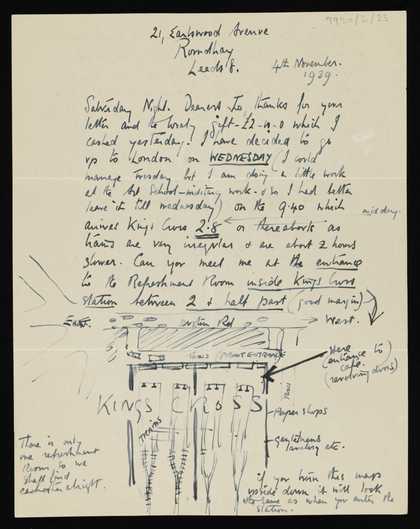 7920/2/23
21, Earlswood Avenue
Roundhay
Leeds 8.
4th November.
1939.
Saturday Night. Dearest Jo, thanks for your
letter and the lovely gift - £2-10-0 which I
cashed yesterday. I have decided to go
up to London on WEDNESDAY (I could
manage Tuesday but I am doing a little work
at the Art School - military work - so I had better
leave it till wednesday) on the 9.40 which
arrives Kings Cross 2.8 or thereabouts as
mid day.
trains are very irregular & are about 2 hours
slower. Can you meet me at the entrance
to the Refreshment Room inside Kings Cross
station between 2 & half past (good margin)
East. Euston Rd West.
FRONT ENTRANCE
Here
entrance to
cafe.
(revolving doors)
KINGS CROSS
TRAINS
Paper shops
gentlemens
lavatory etc.
There is only
one refreshment
Room, so we
shall find
each other alright.
if you turn this map
upside down it will look
the same as when you enter the
station.